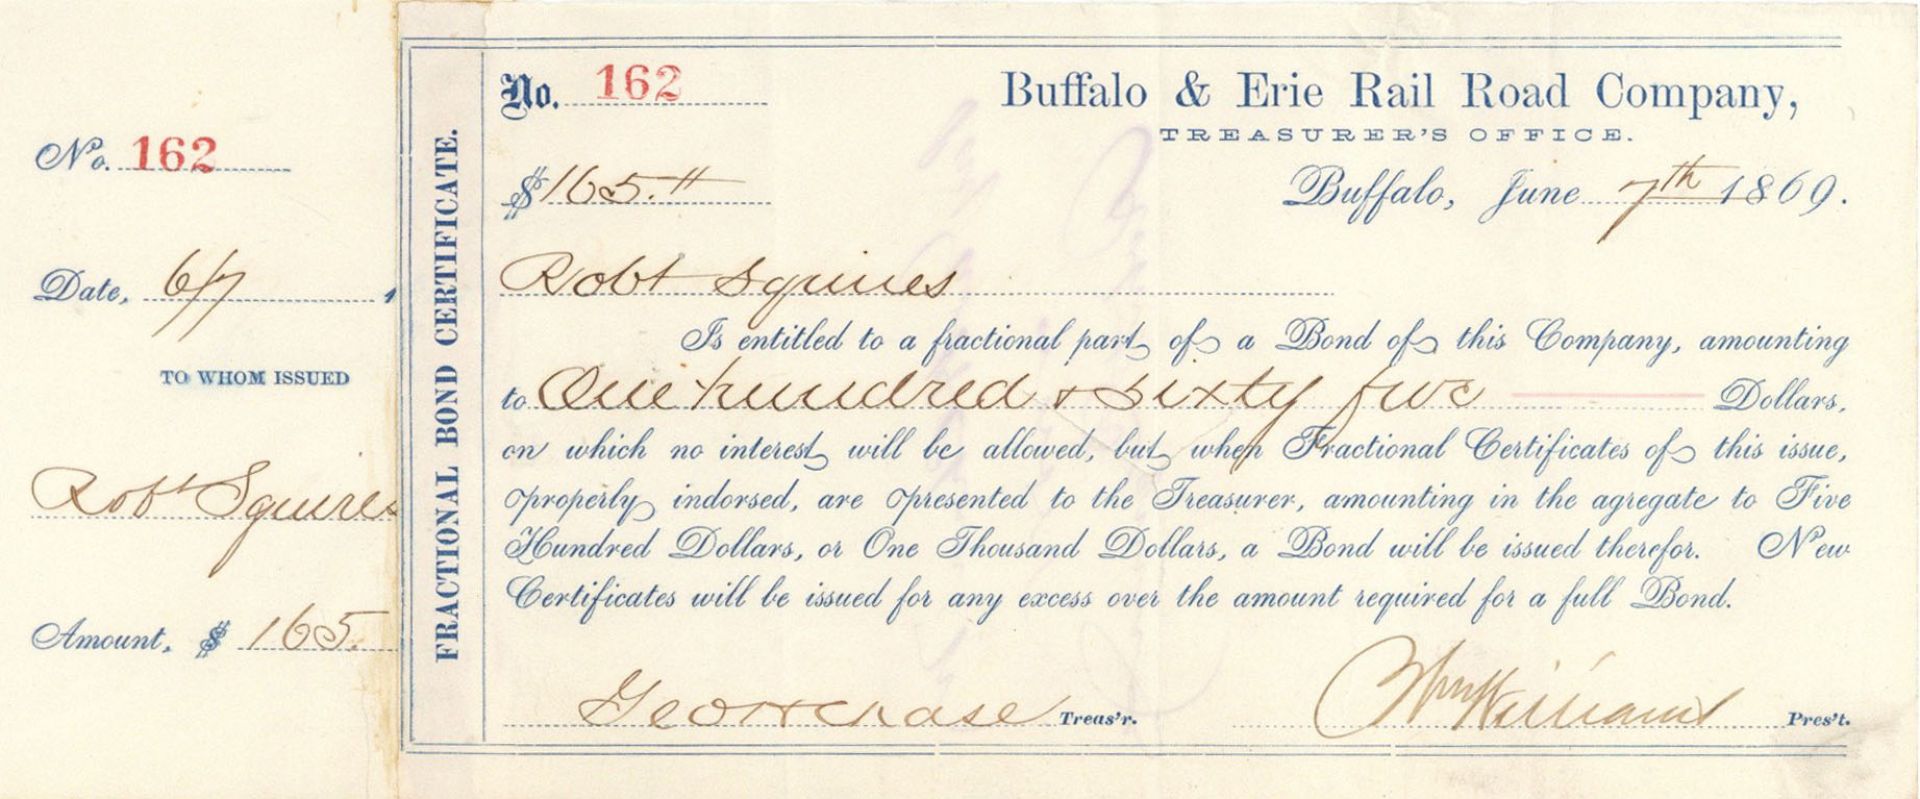 No. 162
Date, 6/7 1
TO WHOM ISSUED
Robt Squires
Amount, $ 165.
FRACTIONAL BOND CERTIFICATE.
No. 162
Buffalo & Erie Rail Road Company,
TREASURER'S OFFICE.
$165.
Buffalo, June 7th 1869.
Robt Squires
Is entitled to a fractional part of a Bond of this Company, amounting
to One hundred & sixty five Dollars,
on which no interest will be allowed, but when Fractional Certificates of this issue,
properly indorsed, are presented to the Treasurer, amounting in the agregate to Five
Hundred Dollars, or One Thousand Dollars, a Bond will be issued therefor. New
Certificates will be issued for any excess over the amount required for a full Bond.
Geo H Chase Treas'r.
Wm Williams Pres't.